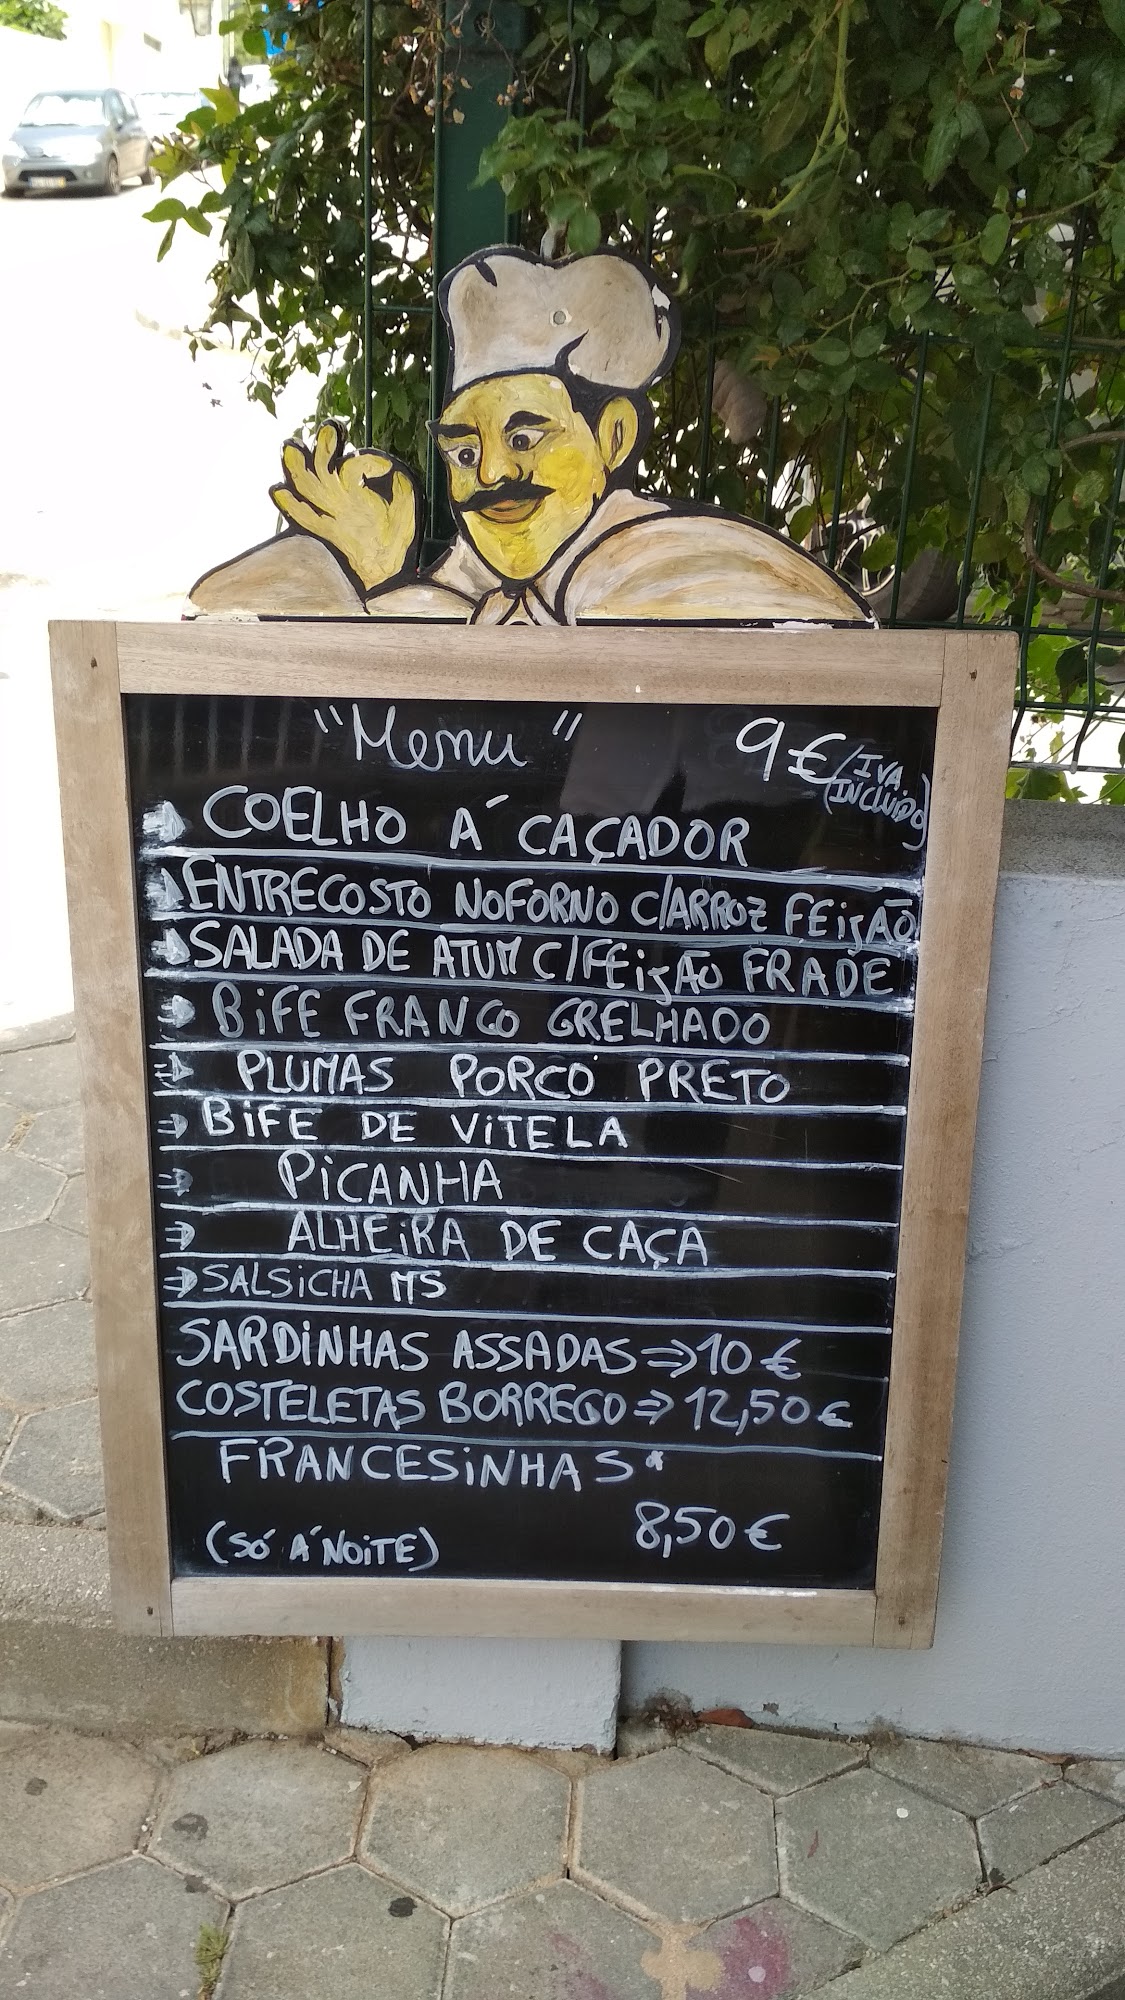 "Menu" 9€ (IVA INCLUIDO)
COELHO Á CAÇADOR
ENTRECOSTO NO FORNO C/ARROZ FEIJÃO
SALADA DE ATUM C/FEIJÃO FRADE
BIFE FRANGO GRELHADO
PLUMAS PORCO PRETO
BIFE DE VITELA
PICANHA
ALHEIRA DE CAÇA
⇒ SALSICHA MS
SARDINHAS ASSADAS ⇒ 10€
COSTELETAS BORREGO ⇒ 12,50€
FRANCESINHAS*
8,50€
(SÓ Á NOITE)